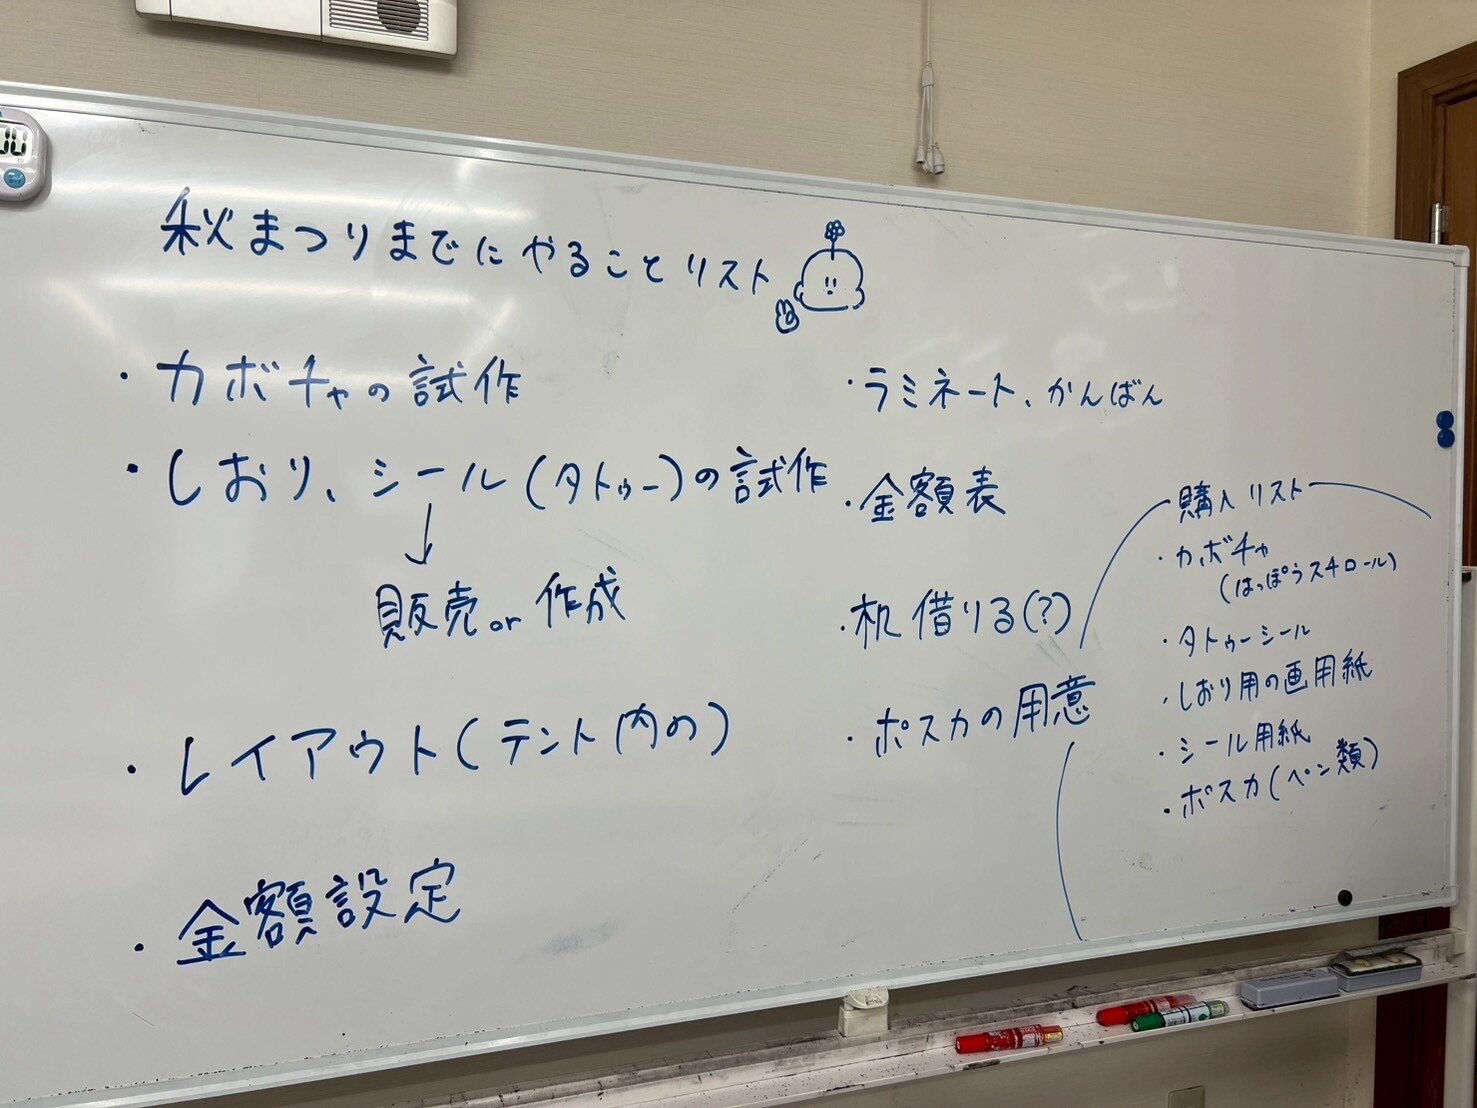 秋まつりまでにやることリスト
・カボチャの試作
・しおり、シール(タトゥー)の試作
↓
販売or作成
・レイアウト(テント内の)
・金額設定
・ラミネート、かんばん
・金額表
・机借りる(?)
・ポスカの用意
購入リスト
・カボチャ
(はっぽうスチロール)
・タトゥーシール
・しおり用の画用紙
・シール用紙
・ポスカ(ペン類)